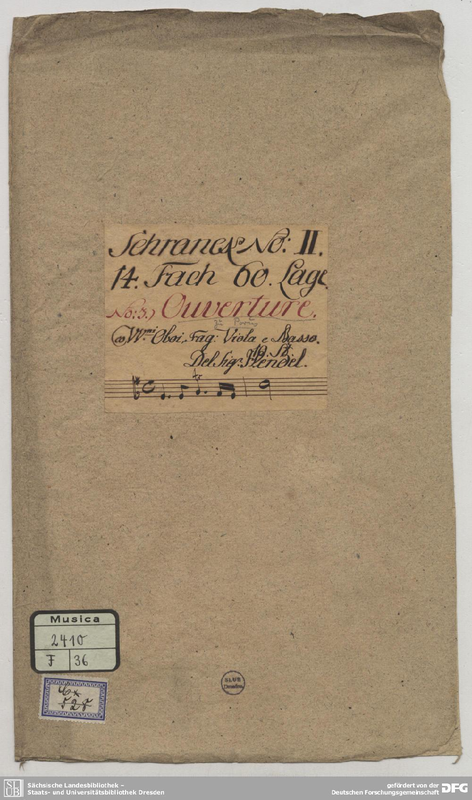 Schranck No: II.
14. Fach 60. Lage
No: 3.) Ouverture.
co VV.ni Oboi, Fag: Viola e Basso.
19. St.
Del Sig: Hendel.
Musica
2410
F 36
Cx
528
SLUB
Dresden
Sächsische Landesbibliothek –
Staats- und Universitätsbibliothek Dresden
gefördert von der
Deutschen Forschungsgemeinschaft
DFG